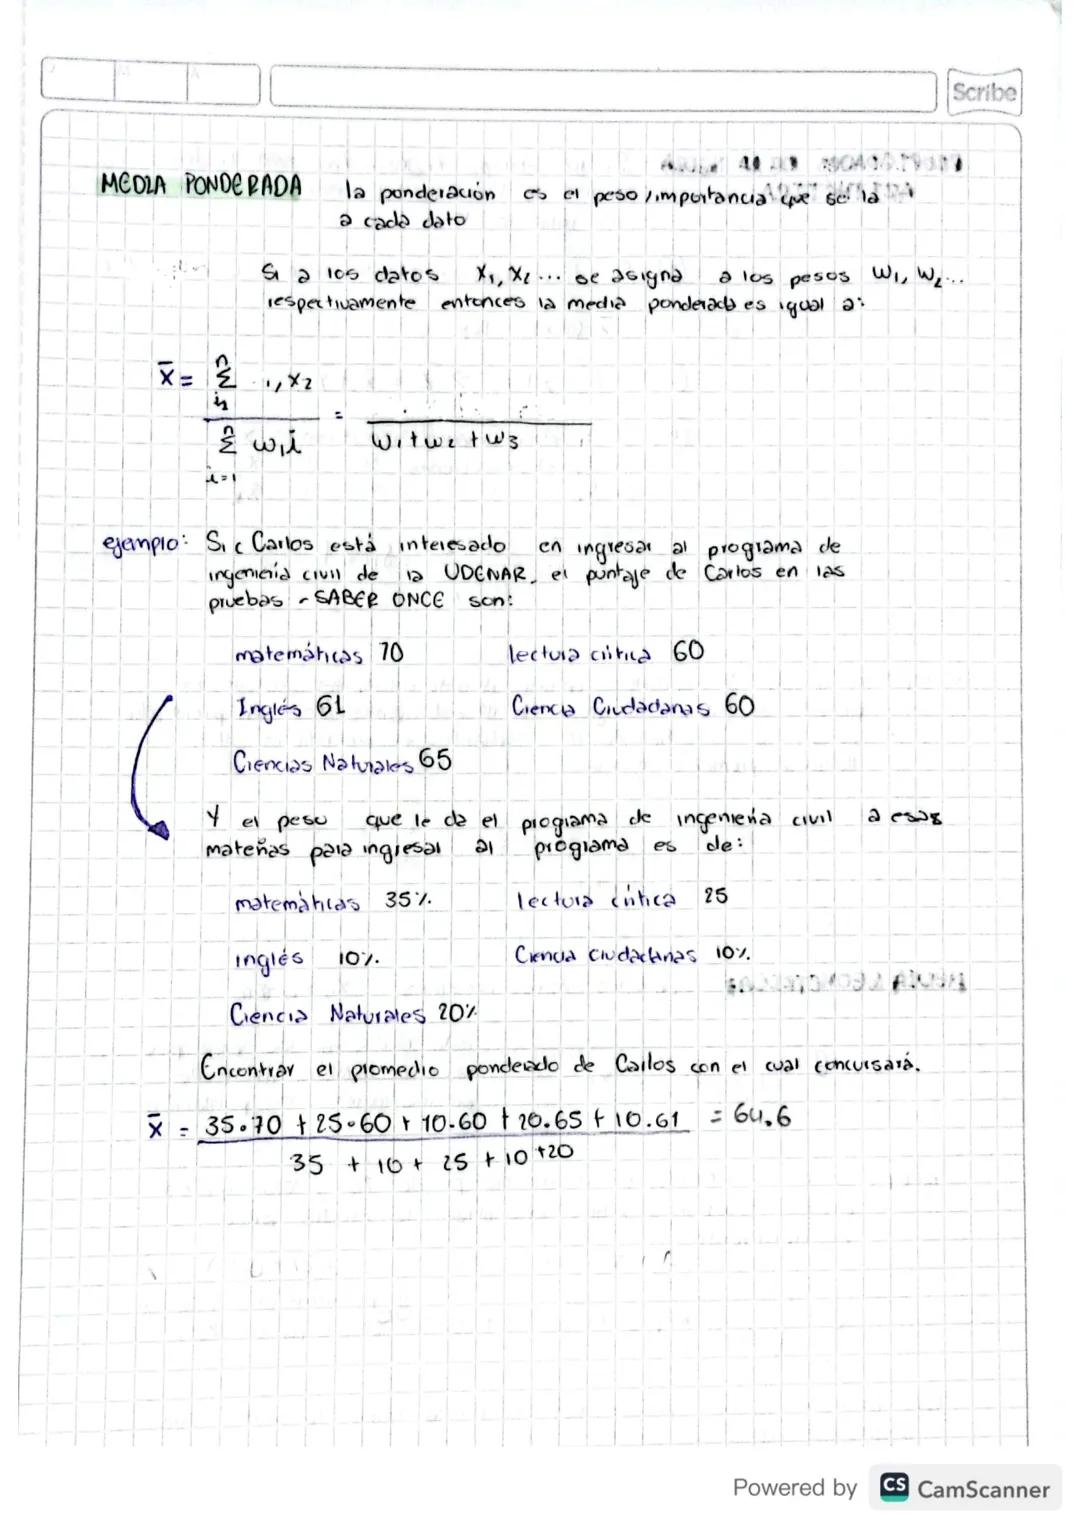 Scribe
MEDIA PONDERADA la ponderación es el peso/importancia que se la
a cada dato
Si a los datos X₁, X₂... se asigna a los pesos W₁, W₂...
respectivamente entonces la media ponderada es igual a:
n n
x̄ = Σ ₁, x₂
i₁
Σ w₁i = W₁+w₂+w₃
i=1
ejemplo: Si c Carlos está interesado en ingresar al programa de
ingeniería civil de la UDENAR, el puntaje de Carlos en las
pruebas - SABER ONCE son:
matemáticas 70 lectura crítica 60
Inglés 61 Ciencia Ciudadanas 60
Ciencias Naturales 65
Y el peso que le da el programa de ingeniería civil a esas
materias para ingresar al programa es de:
matemáticas 35% lectura crítica 25
inglés 10% Ciencia ciudadanas 10%
Ciencia Naturales 20%
Encontrar el promedio ponderado de Carlos con el cual concursará.
x̄ = 35.70 + 25.60 + 10.60 + 20.65 + 10.61 = 64.6
35 + 10 + 25 + 10 +20
Powered by CS CamScanner